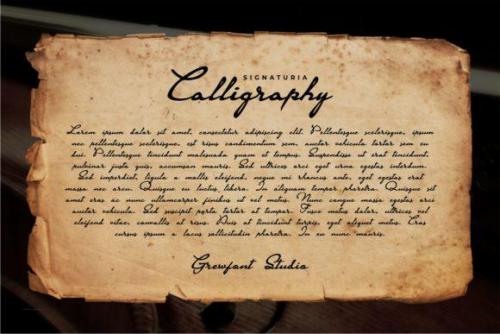 SIGNATURIA
Calligraphy
Lorem ipsum dolor sit amet, consectetur adipiscing elit. Pellentesque scelerisque, ipsum
nec pellentesque scelerisque, est risus condimentum sem, auctor vehicula tortor sem eu
dui. Pellentesque tincidunt malesuada quam et tempus. Suspendisse ut erat tincidunt,
pulvinar justo quis, accumsan mauris. Sed ultrices orci eget urna egestas interdum.
Sed imperdiet, ligula a mollis eleifend, neque mi rhoncus ante, eget egestas erat
massa nec arcu. Quisque eu luctus, libero. In aliquam tempor pharetra. Quisque sit
amet eros ac nunc ullamcorper finibus ut vel metus. Nunc congue massa egestas orci
auctor vehicula. Sed suscipit porta tortor at tempor. Fusce metus dolor, ultrices vel
eleifend vitae, convallis at risus. Duis at tincidunt turpis, eget aliquet metus. Cras
cursus ipsum a lacus sollicitudin pharetra. In eu nunc mauris.
Grewfont Studio